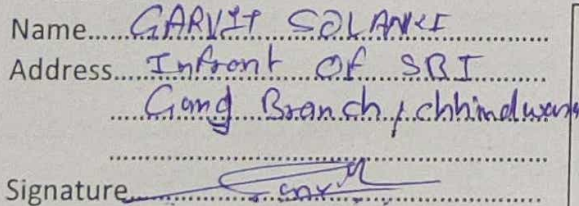 Name....GARVIT SOLANKI
Address....Infront Of SBI
Gang Branch, chhindwara
Signature